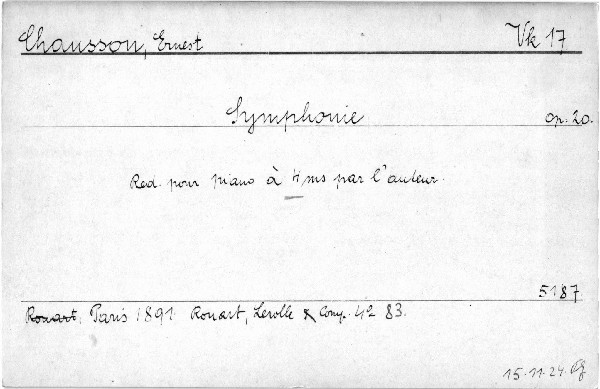 Chausson, Ernest Vk 17
Symphonie op. 20.
Red. pour piano à 4 ms par l'auteur.
5187
Rouart, Paris 1891 Rouart, Lerolle & Comp. 42 83.
15.11.24.